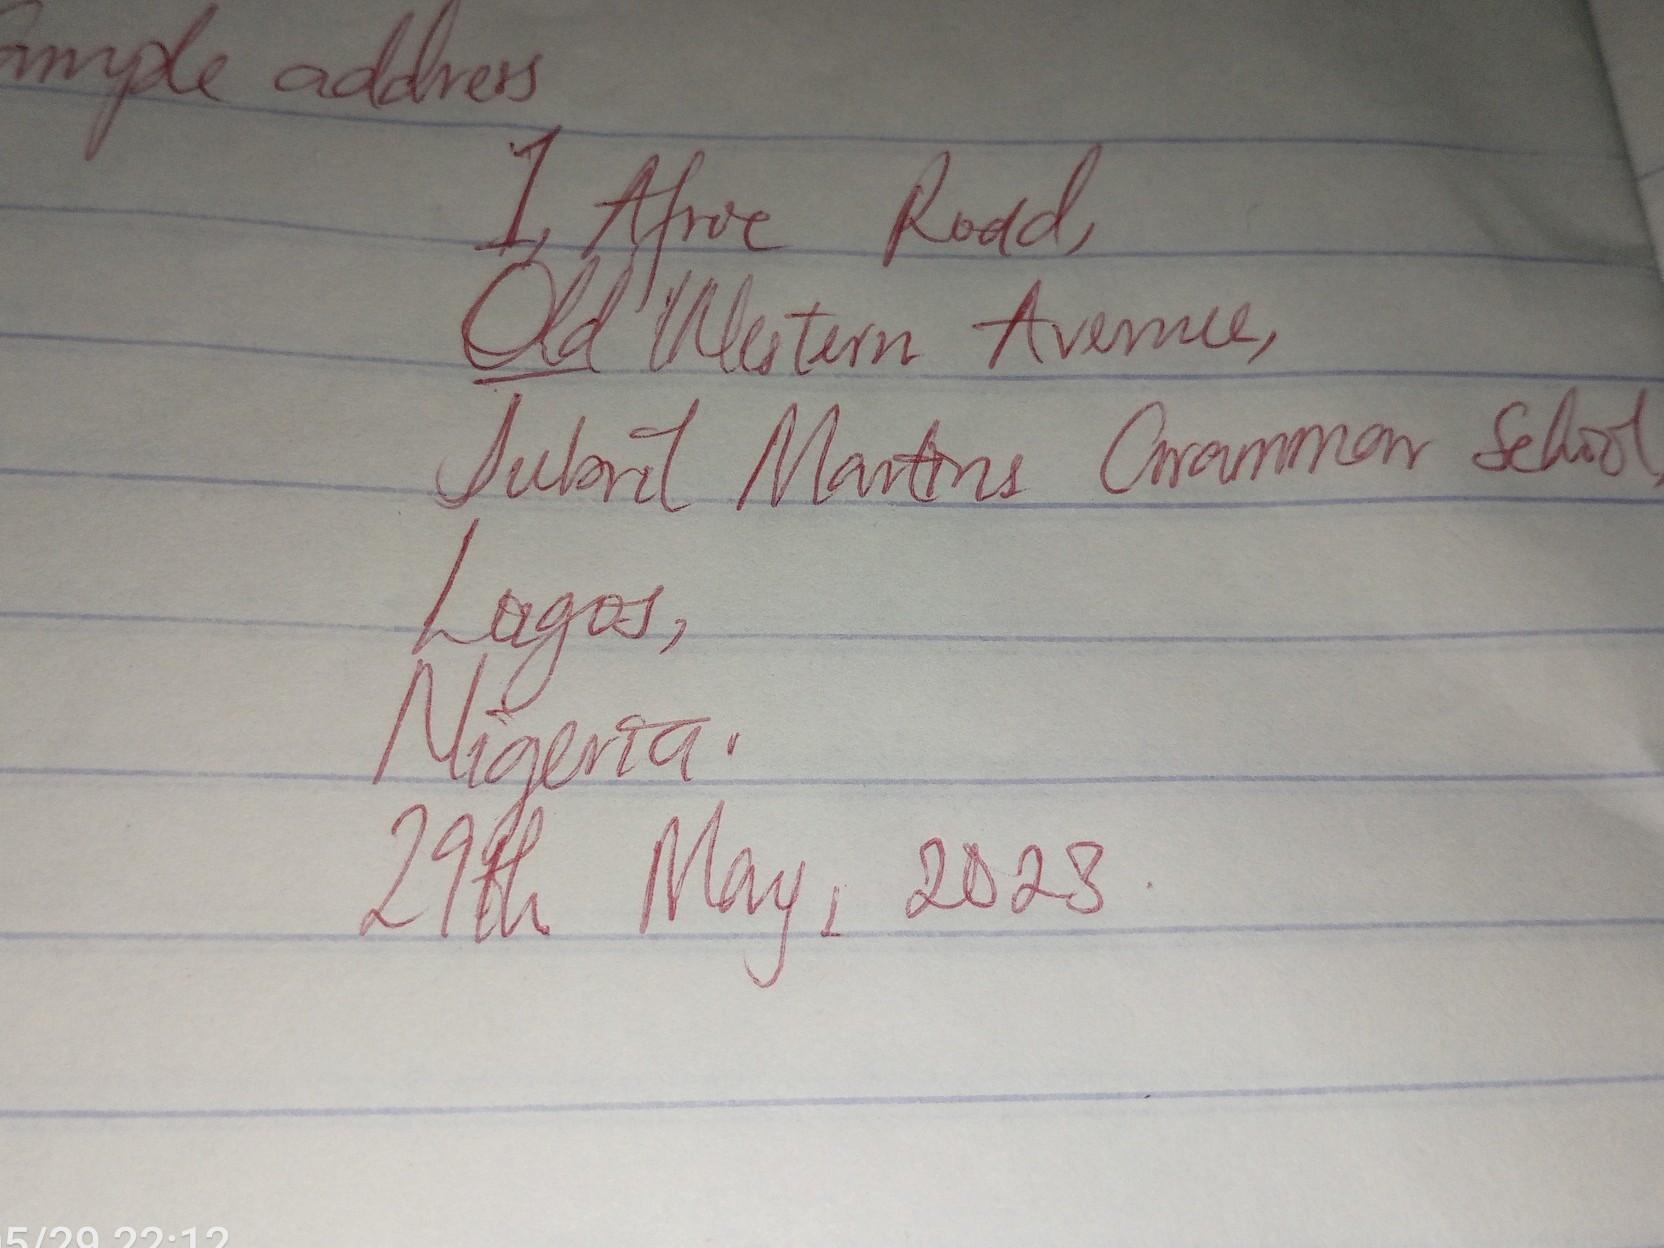 Sample address
1, Afroe Road,
Old Western Avenue,
Jubril Martins Grammar School,
Lagos,
Nigeria.
29th May, 2023.
05/29 22:12